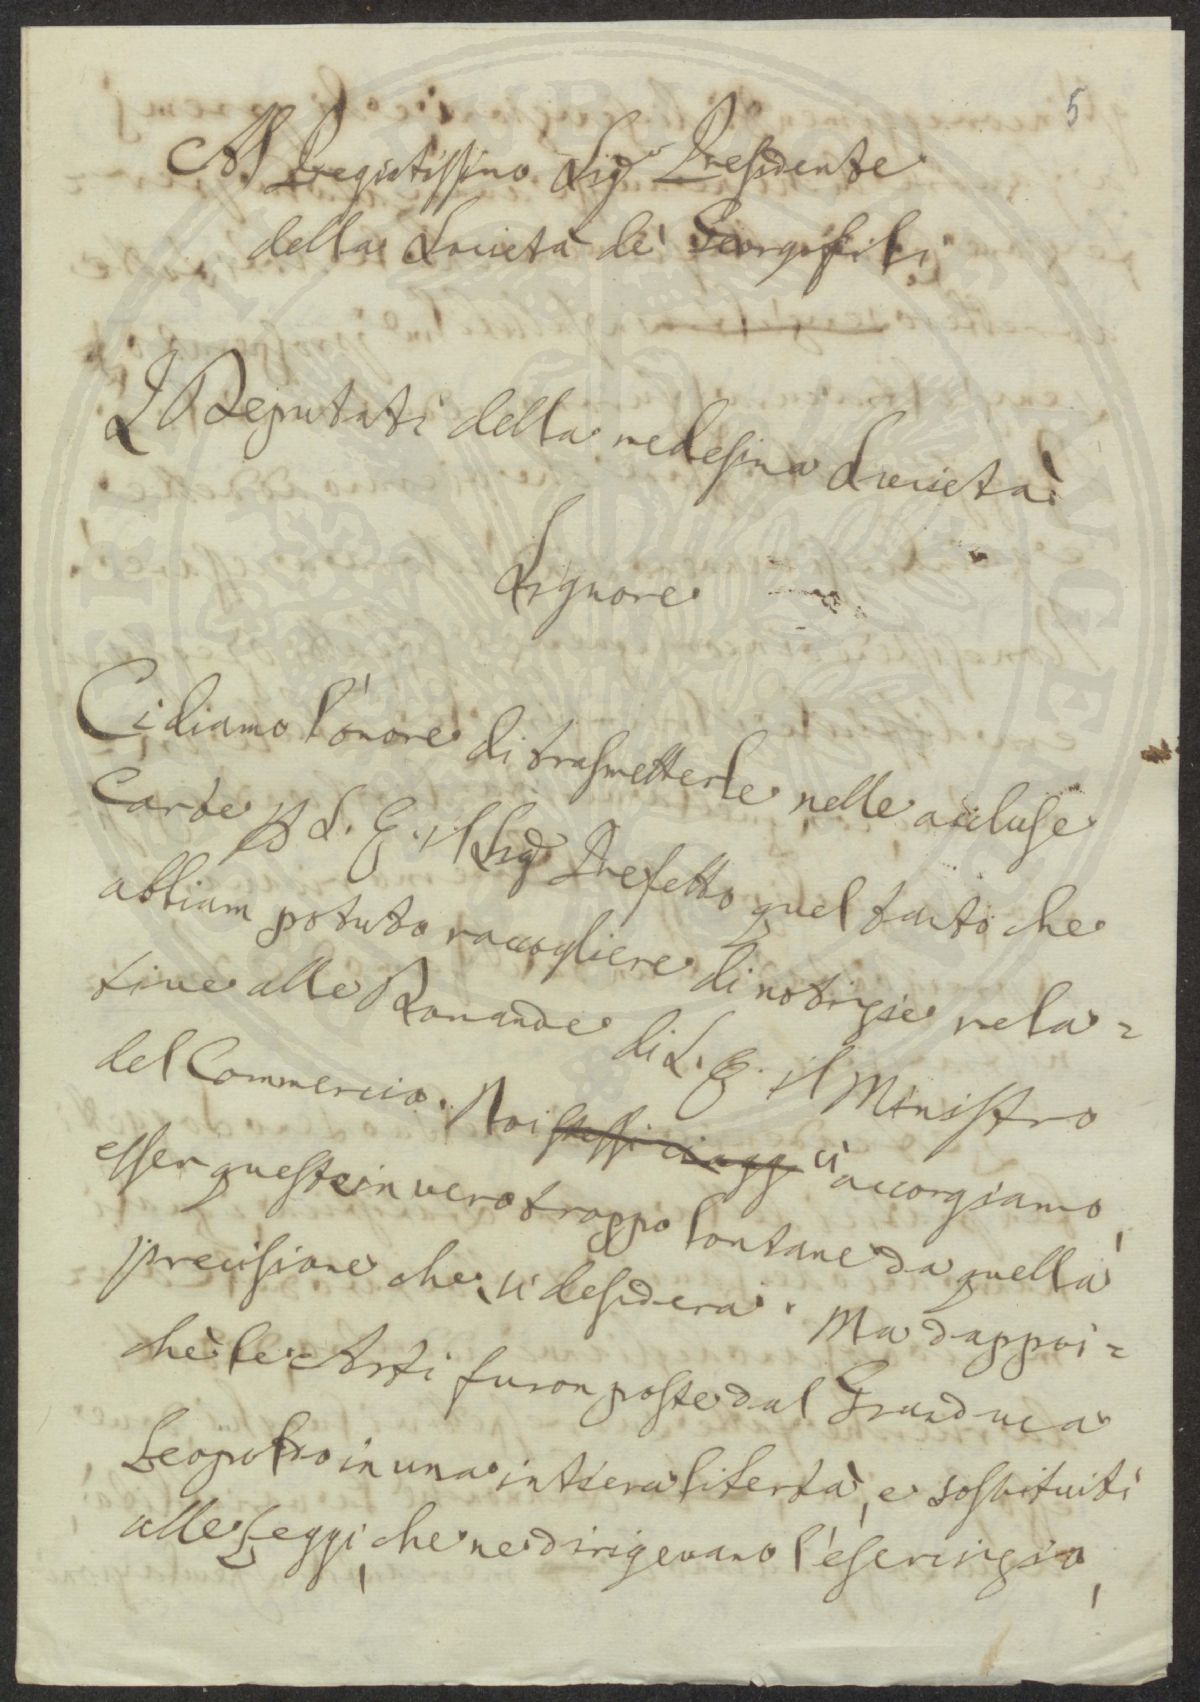 5
Al Pregiatissimo Sig.r Presidente
della Società de' Georgofili
I Deputati della medesima Società
Signore
Ci diamo l'onore di trasmetterle nelle accluse
Carte p S. E. il Sig.r Prefetto quel tanto che
abbiam potuto raccogliere di notizie rela=
tive alle Domande di S. E. il Ministro
del Commercio. Noi stessi ci ci accorgiamo,
esser queste in vero troppo lontane da quella
precisione che si desidera. Ma dappoi=
chè le Arti furon poste dal Granduca
Leopoldo in una intiera libertà, e sostituiti
alle Leggi, che ne dirigevano l'esercizio,